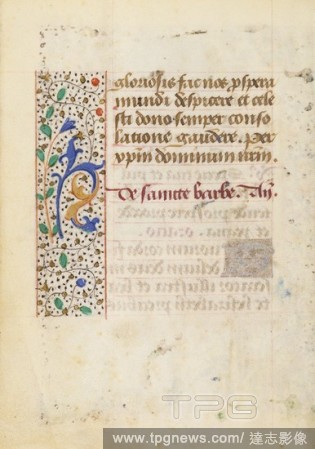 gloriosis fac nos p̱spera
mundi despicere et cele
sti dono semper conso
latione gaudere. Per
xp̄m dominum nr̄m.
De saincte barbe. Añ.
TPG
www.tpgnews.com/ 達志影像